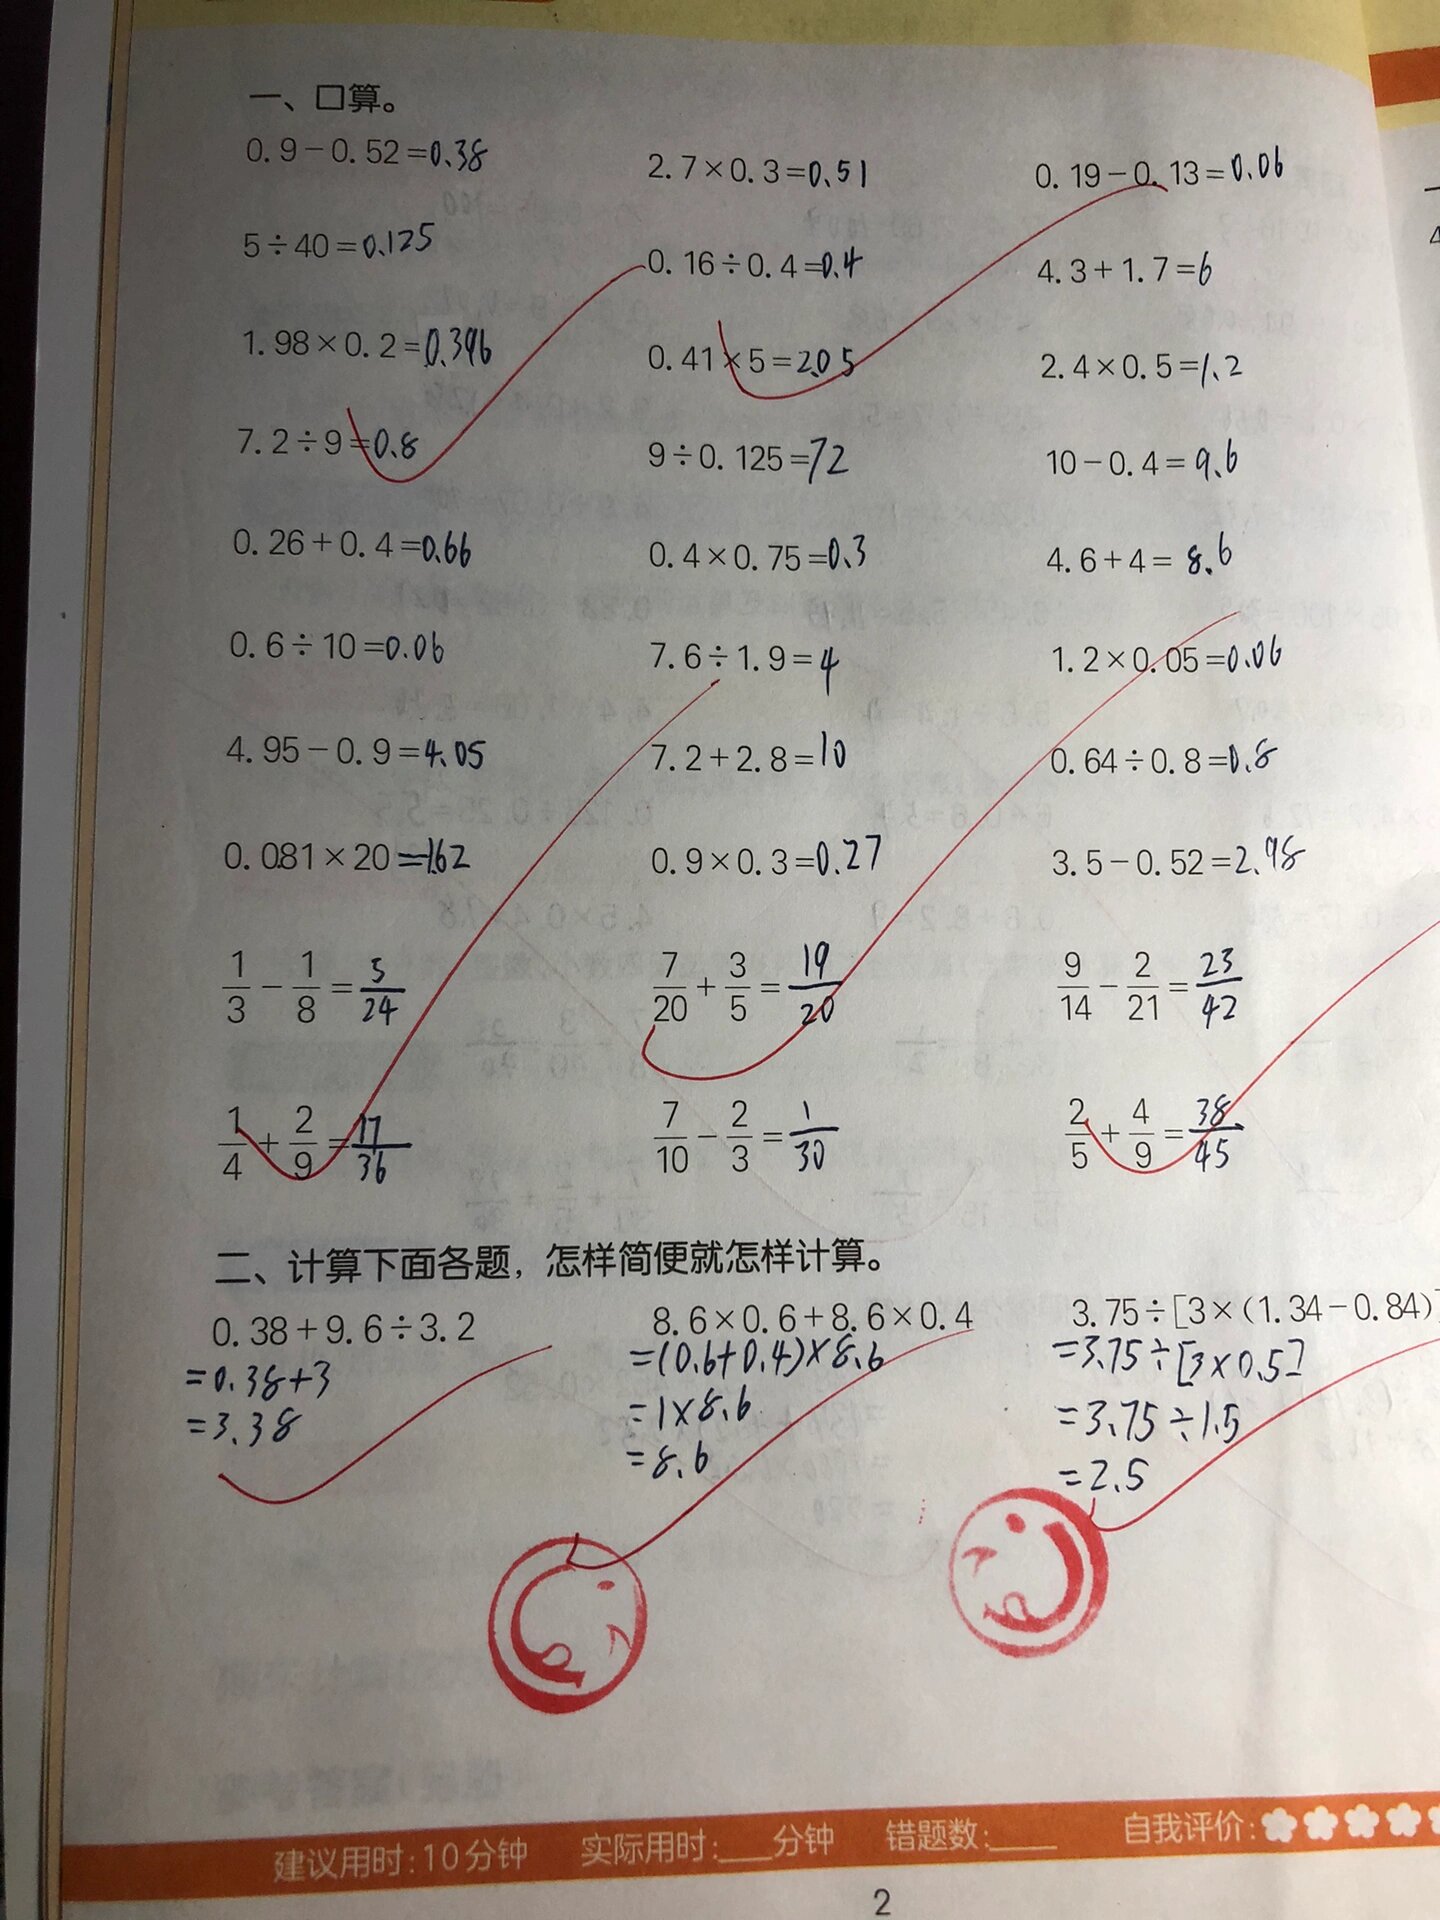 一、口算。
0.9-0.52=0.38 2.7×0.3=0.51 0.19-0.13=0.06
5÷40=0.125 0.16÷0.4=0.4 4.3+1.7=6
1.98×0.2=0.396 0.41×5=2.05 2.4×0.5=1.2
7.2÷9=0.8 9÷0.125=72 10-0.4=9.6
0.26+0.4=0.66 0.4×0.75=0.3 4.6+4=8.6
0.6÷10=0.06 7.6÷1.9=4 1.2×0.05=0.06
4.95-0.9=4.05 7.2+2.8=10 0.64÷0.8=0.8
0.081×20=1.62 0.9×0.3=0.27 3.5-0.52=2.98
1/3-1/8=5/24 7/20+3/5=19/20 9/14-2/21=23/42
1/4+2/9=17/36 7/10-2/3=1/30 2/5+4/9=38/45
二、计算下面各题，怎样简便就怎样计算。
0.38+9.6÷3.2 8.6×0.6+8.6×0.4 3.75÷[3×(1.34-0.84)]
=0.38+3 =(0.6+0.4)×8.6 =3.75÷[3×0.5]
=3.38 =1×8.6 =3.75÷1.5
=8.6 =2.5
建议用时:10分钟 实际用时:___分钟 错题数:____ 自我评价:
2